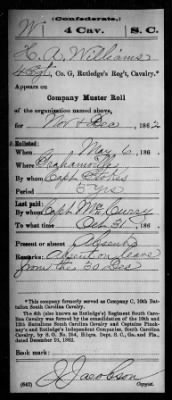 (Confederate.)
W. 4 Cav. S. C.
H. A. Williams
Sgt, Co. G, Rutledge's Reg't, Cavalry.*
Appears on
Company Muster Roll
of the organization named above,
for Nov & Dec, 1862
Enlisted:
When May 6, 186 .
Where Grahamville
By whom Capt Stokes
Period 3 yrs
Last paid:
By whom Capt McCurry
To what time Oct 31, 186 .
Present or absent Absent
Remarks: Absent on leave
from the 30 Dec
*This company formerly served as Company C, 10th Battalion South Carolina Cavalry.
The 4th (also known as Rutledge's) Regiment South Carolina Cavalry was formed by the consolidation of the 10th and
12th Battalions South Carolina Cavalry and Captains Pinckney's and Rutledge's Independent Companies, South Carolina
Cavalry, by S. O. No.
Department dated December 16, 1862.
Book mark:
(642) J. Jacobson
Copyist.